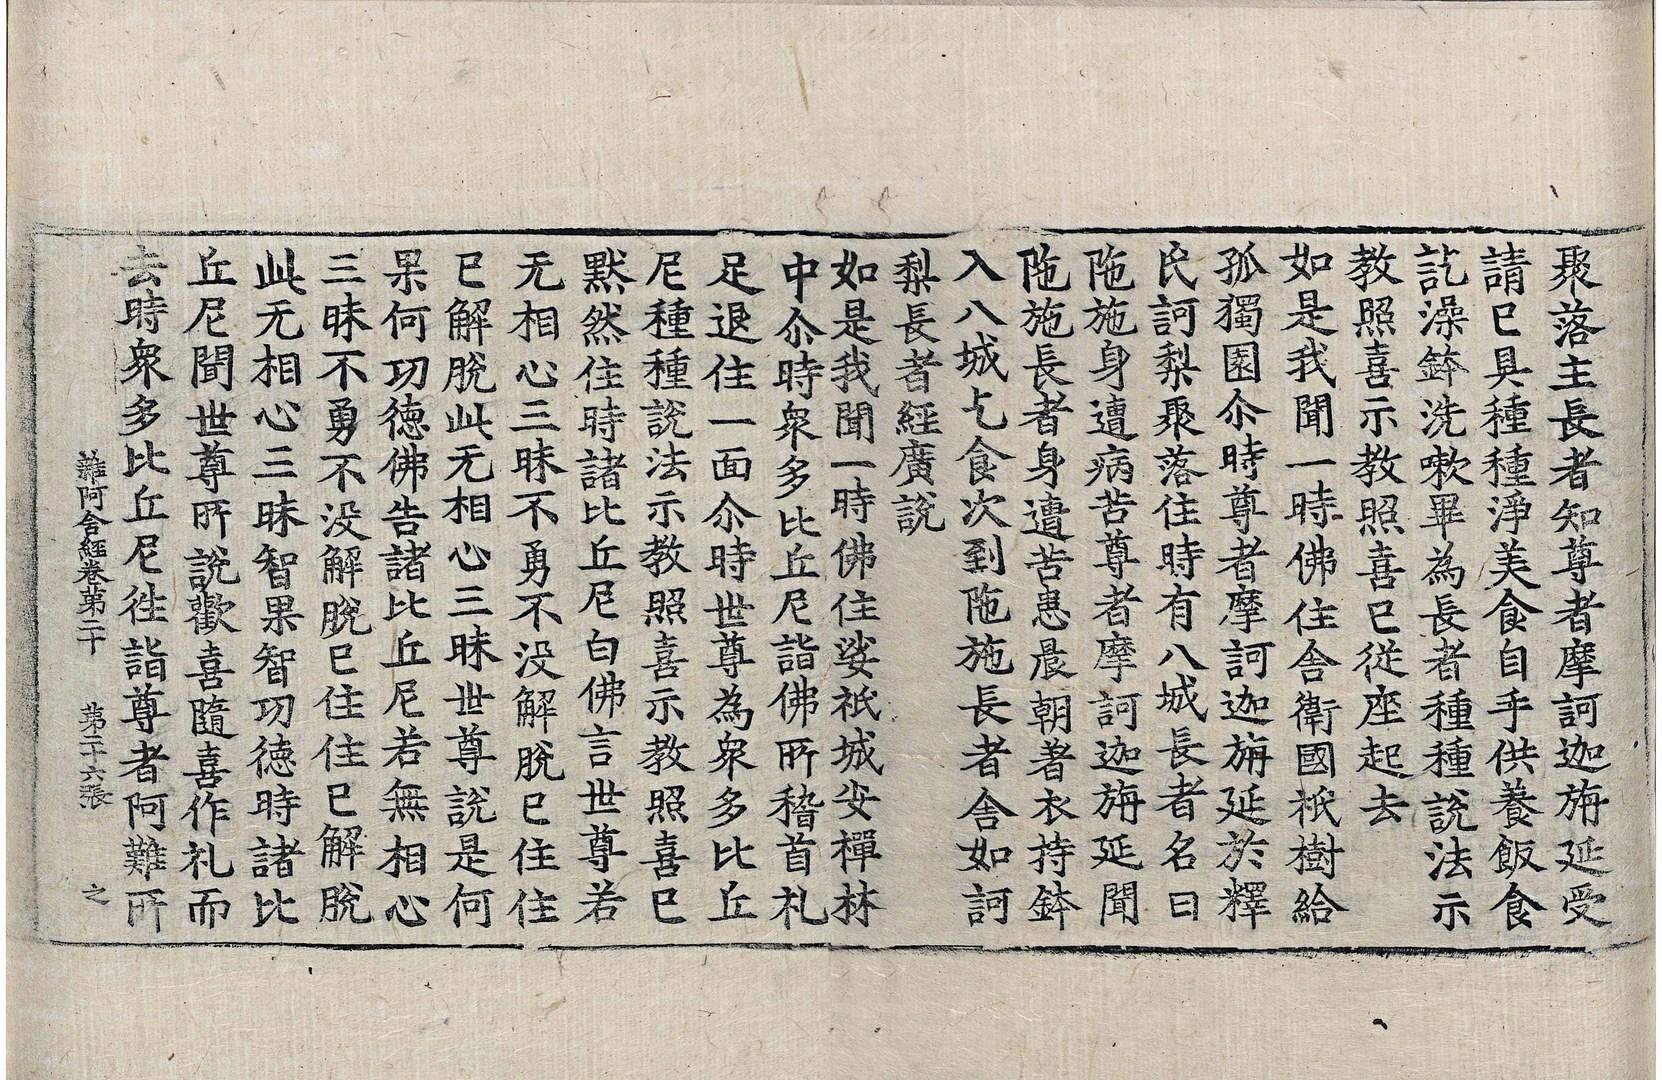 聚落主長者知尊者摩訶迦旃延受
請已具種種淨美食自手供養飯食
訖澡鉢洗嗽畢為長者種種說法示
教照喜示教照喜已從座起去
如是我聞一時佛住舍衛國祇樹給
孤獨園尒時尊者摩訶迦旃延於釋
氏訶梨聚落住時有八城長者名曰
陁施身遭病苦尊者摩訶迦旃延聞
陁施長者身遭苦患晨朝著衣持鉢
入八城乞食次到陁施長者舍如訶
梨長者經廣說
如是我聞一時佛住娑祇城安禪林
中尒時衆多比丘尼詣佛所稽首礼
足退住一面尒時世尊為衆多比丘
尼種種說法示教照喜示教照喜已
默然住時諸比丘尼白佛言世尊若
无相心三昧不勇不没解脫已住住
已解脫此无相心三昧世尊說是何
果何功德佛告諸比丘尼若無相心
三昧不勇不没解脫已住住已解脫
此无相心三昧智果智功德時諸比
丘尼聞世尊所說歡喜隨喜作礼而
去時衆多比丘尼往詣尊者阿難所
雜阿含經卷第二十 第二十六張 之